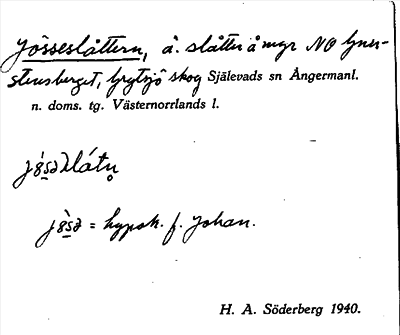 Jösseslåttern, å. slåtter å myr NO
stensberget, skog Själevads sn Ångermanl.
n. doms. tg. Västernorrlands l.
= hypok. f. Johan.
H. A. Söderberg 1940.